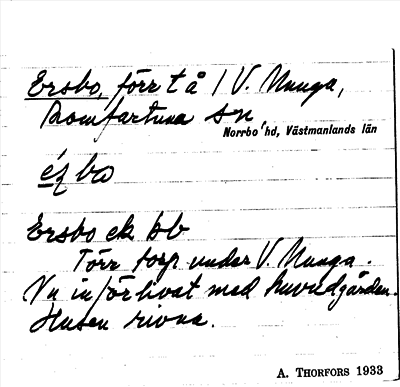 Ersbo, förr t å / V. Munga,
Romfartuna sn,
Norrbo hd, Västmanlands län
Ersbo ek bb
Förr torp under V. Munga.
Nu införlivat med huvudgården.
Husen rivna.
A. THORFORS 1933